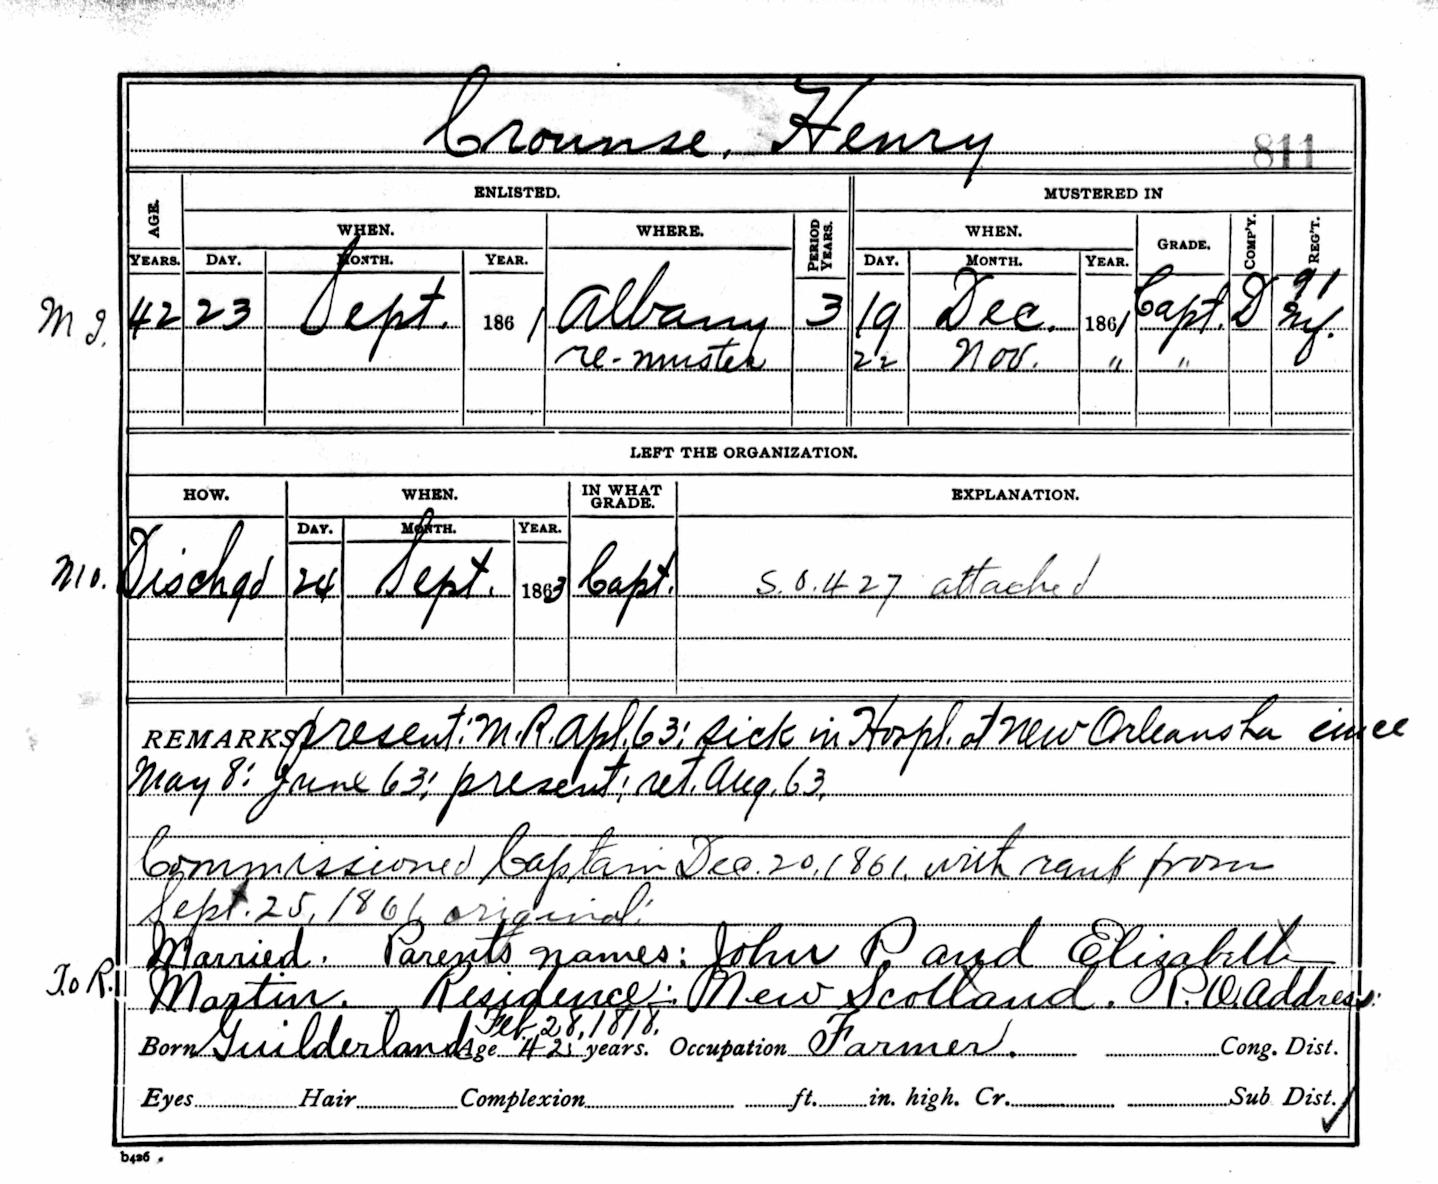 Crounse, Henry
811
ENLISTED. MUSTERED IN
AGE. WHEN. WHERE. PERIOD YEARS. WHEN. GRADE. COMP'Y. REG'T.
YEARS. DAY. MONTH. YEAR. DAY. MONTH. YEAR.
M I. 42 23 Sept. 1861 Albany 3 19 Dec. 1861 Capt. D 91 NY.
re-muster 22 Nov. " "
LEFT THE ORGANIZATION.
HOW. WHEN. IN WHAT GRADE. EXPLANATION.
DAY. MONTH. YEAR.
M O. Dischgd 24 Sept. 1863 Capt. S.O. 427 attached
REMARKS present: M.R. Apl. 63: sick in Hospl. at New Orleans La since
May 8: June 63; present; ret. Aug. 63.
Commissioned Captain Dec. 20, 1861, with rank from
Sept. 25, 1861 original:
Married. Parents names: John P. and Elisabeth
T. o R. Martin. Residence: New Scotland. P.O. address:
Feb. 28, 1818.
Born Guilderland Age 42 years. Occupation Farmer. Cong. Dist.
Eyes Hair Complexion ft. in. high. Cr. Sub Dist.
b426